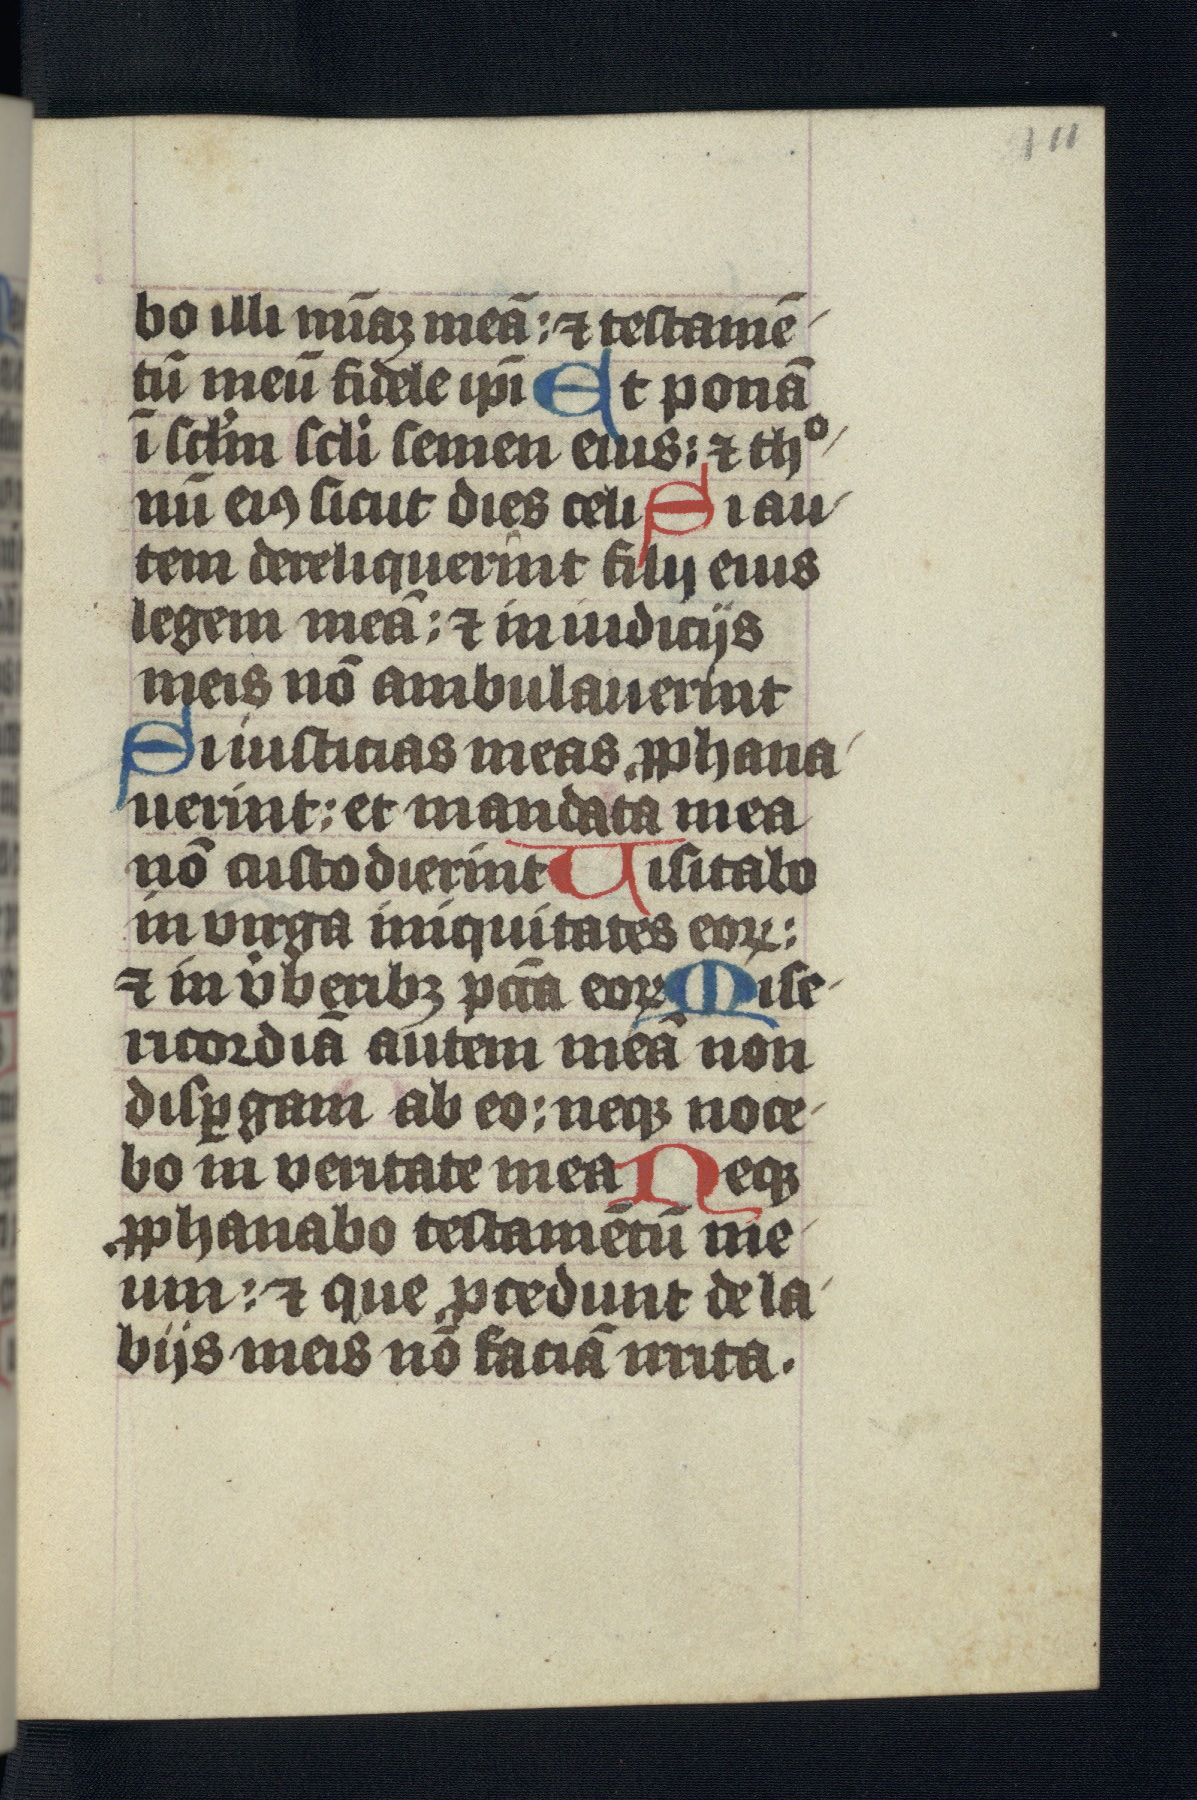 111
bo illi mīaꝫ meā: ⁊ testamē
tū meū fidele ip̄i Et ponā
ī sclm̄ scli semen eius: ⁊ thᵒ
nū eiꝰ sicut dies celi Si au
tem dereliquerint filij eius
legem meā: ⁊ in iudicijs
meis nō ambulauerint
Si iusticias meas ꝓphana
uerint: et mandata mea
nō custodierint Uisitabo
in virga iniquitates eoꝝ:
⁊ in v̓beribꝫ pctā eoꝝ Mise
ricordiā autem meā non
disꝑgam ab eo: neqꝫ noce
bo in veritate mea Neqꝫ
ꝓphanabo testamētū me
um: ⁊ que ꝓcedunt de la
bijs meis nō faciā irrita.